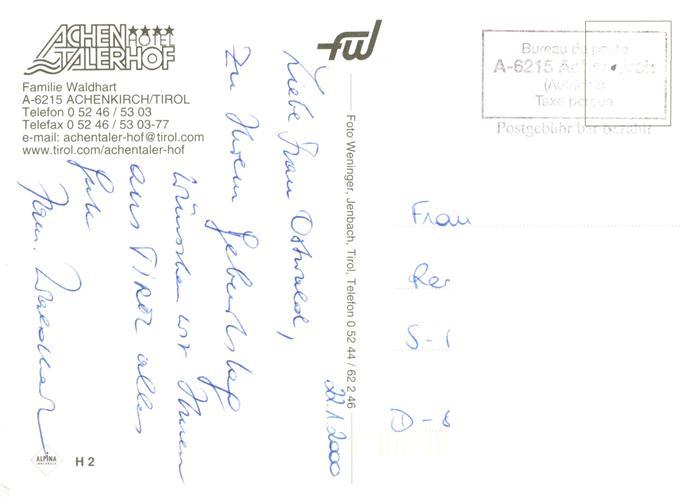 ACHEN
HOTEL
TALERHOF
Familie Waldhart
A-6215 ACHENKIRCH/TIROL
Telefon 0 52 46 / 53 03
Telefax 0 52 46 / 53 03-77
e-mail: achentaler-hof@tirol.com
www.tirol.com/achentaler-hof
Liebe Frau Ostwald,
zu Ihrem Geburtstag
wünschen wir Ihnen
aus TIROL alles
Gute
Fam. Waldhart
22.1.2000
ALPINA
H 2
fw
Foto Weninger, Jenbach, Tirol, Telefon 0 52 44 / 62 2 46
Bureau de poste
A-6215 Achenkirch
(Autriche)
Taxe perçue
Postgebühr bar bezahlt
Frau
D-8